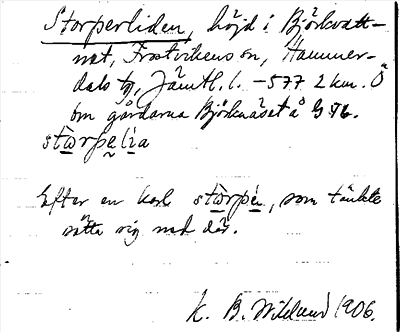 Storperliden, höjd i Björkvatt-
net, Frostvikens sn, Hammer-
dals tg, Jämtl. l. -577 2 km. Ö
om gårdarna Björknäset å G 76.
stɷrpelia
Efter en karl stɷrpér, som tänkte
sätta sig ned där.
K. B. Wiklund 1906.